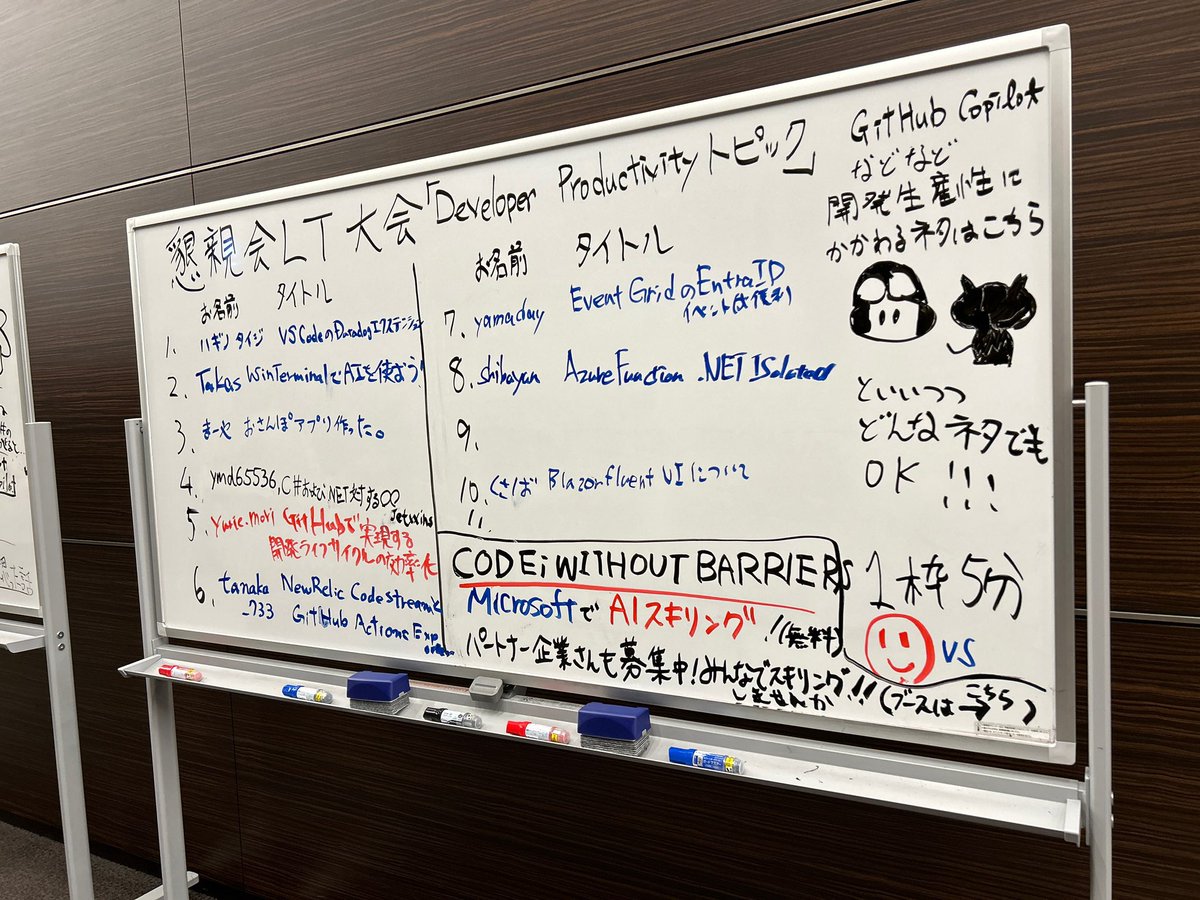 懇親会LT大会「Developer Productivityトピック」
お名前 タイトル
1. ハギノタイジ VS CodeのDatadogエクステンション
2. Takas WinTerminalでAIを使おう!
3. まーや おさんぽアプリ作った。
4. ymd65536, C#および.NET対する
Jetwins
5. yurie.mori GitHubで実現する
開発ライフサイクルの効率化
6. tanaka NewRelic Codestreamと
_733 GitHub Actions Exp
お名前 タイトル
7. yamaday Event GridのEntra ID
イベントは便利
8. shibayan Azure Function .NET Isolated
9.
10. くさば Blazor fluent UIについて
11.
GitHub Copilot
などなど
開発生産性に
かかわるネタはこちら
といいつつ
どんなネタでも
OK!!!
1枠5分
VS
CODE; WITHOUT BARRIERS
MicrosoftでAIスキリング!(無料)
パートナー企業さんも募集中!みんなでスキリング!!
しませんか
(ブースはこちら)